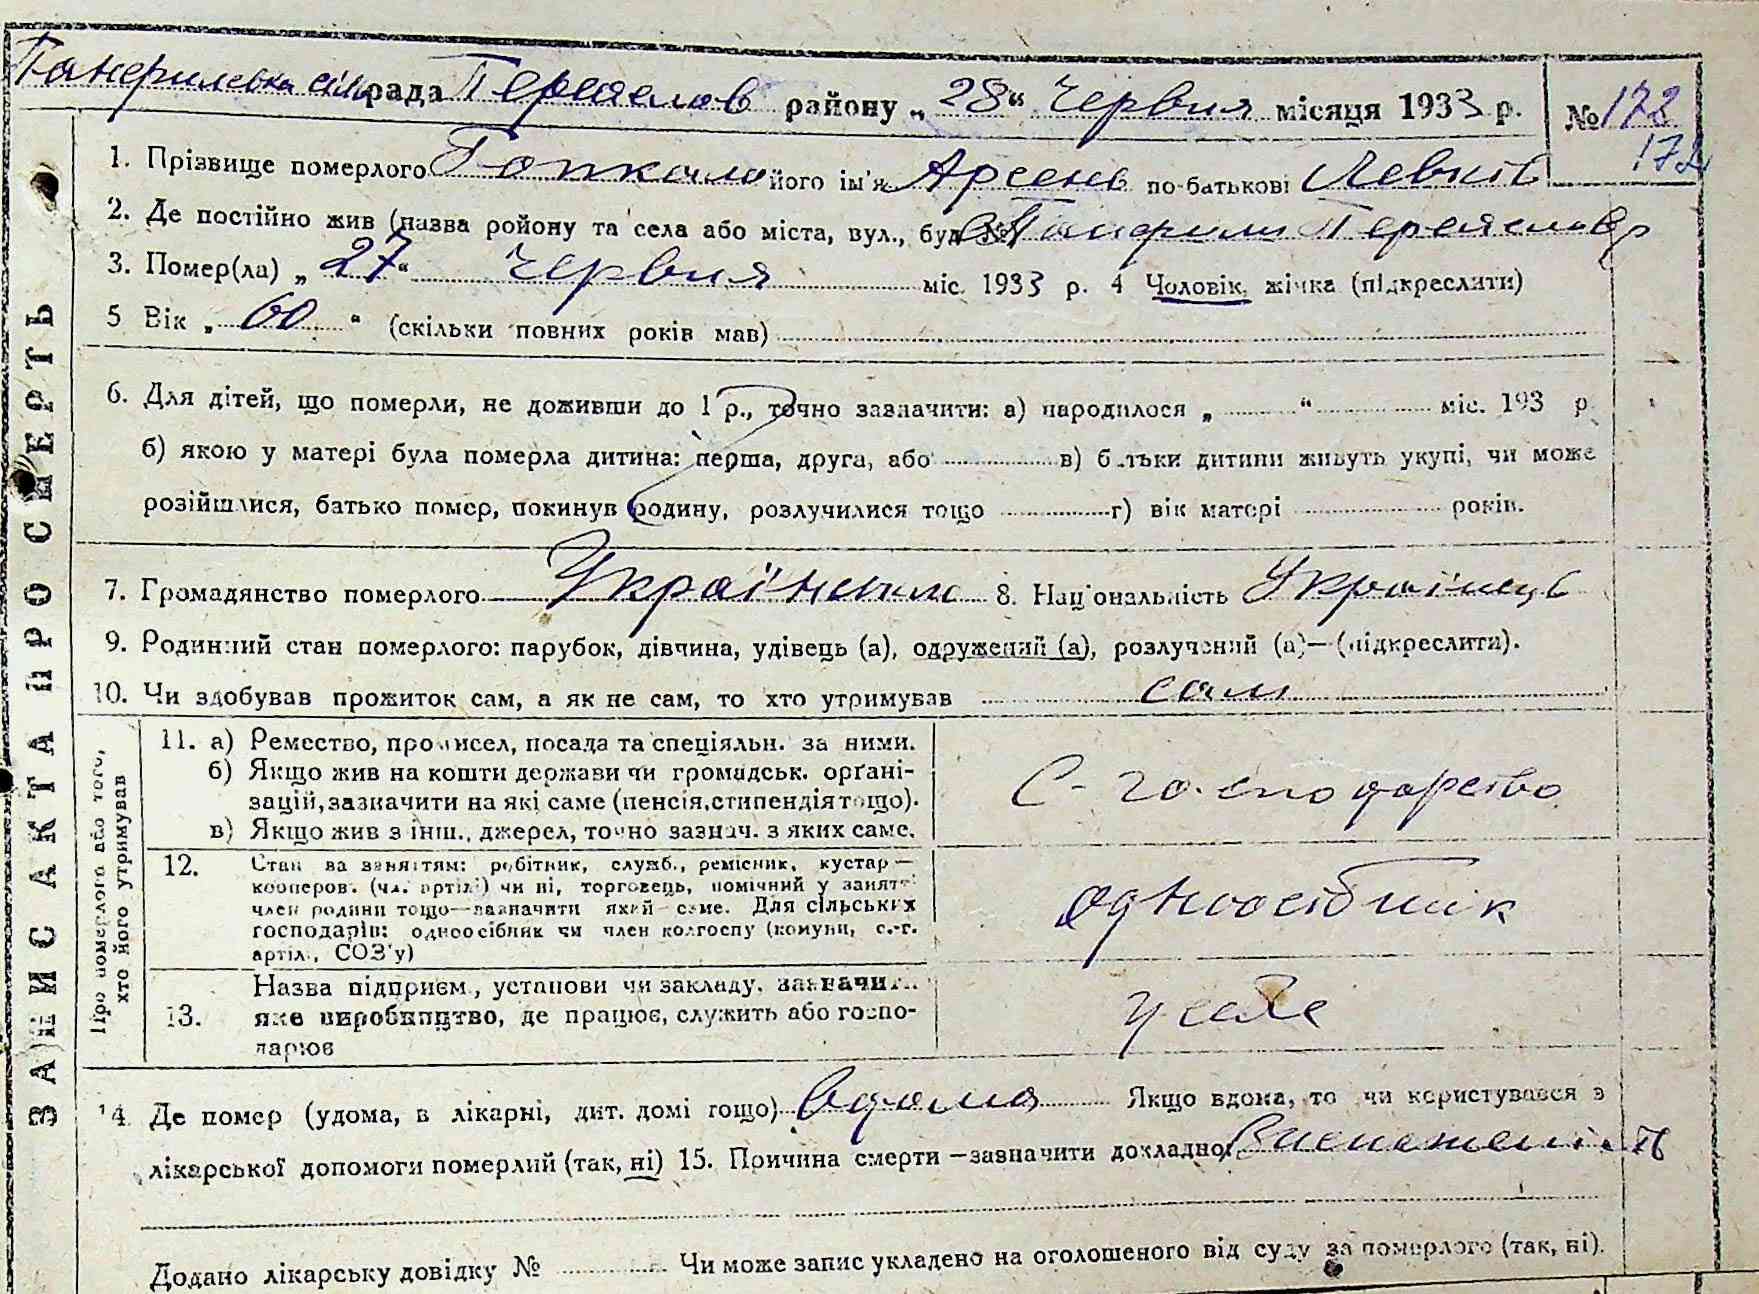 Панфилевка сільрада Переяслов району „28“ Червня місяця 1933 р. № 172
172
1. Прізвище померлого Гопкало його ім'я Арсень по-батькові Левков
2. Де постійно жив (назва ройону та села або міста, вул., буд. № с Панфили Переяслов р
3. Помер(ла) „27“ Червня міс. 1933 р. 4 Чоловік, жінка (підкреслити)
5 Вік „60“ (скільки повних років мав)
6. Для дітей, що померли, не доживши до 1 р., точно зазначити: а) народилося „ “ міс. 193 р.
б) якою у матері була померла дитина: перша, друга, або в) батьки дитини живуть укупі, чи може
розійшлися, батько помер, покинув родину, розлучилися тощо г) вік матері років.
7. Громадянство померлого 8. Національність Українець
9. Родинний стан померлого: парубок, дівчина, удівець (а), одружений (а), розлучений (а)—(підкреслити).
10. Чи здобував прожиток сам, а як не сам, то хто утримував сам
ЗАПИС АКТА ПРО СМЕРТЬ
Про померлого або того,
хто його утримував
11. а) Ремество, промисел, посада та спеціяльн. за ними.
б) Якщо жив на кошти держави чи громадськ. орґані-
зацій, зазначити на які саме (пенсія, стипендія тощо).
в) Якщо жив з інш., джерел, точно зазнач. з яких саме.
С-господарство
12. Стан за заняттям: робітник, служб., ремісник, кустар—
кооперов. (чл. артілі) чи ні, торговець, помічний у занятті
член родини тощо—зазначити який саме. Для сільських
господарів: одноосібник чи член колгоспу (комуни, с.-г.
артіл., СОЗ'у)
одноосібник
13. Назва підприєм., установи чи закладу, зазначити
яке виробництво, де працює, служить або госпо-
дарює
у себе
14. Де помер (удома, в лікарні, дит. домі тощо) вдома Якщо вдома, то чи користувався з
лікарської допомоги померлий (так, ні) 15. Причина смерти —зазначити докладно
Додано лікарську довідку № Чи може запис укладено на оголошеного від суду за померлого (так, ні).